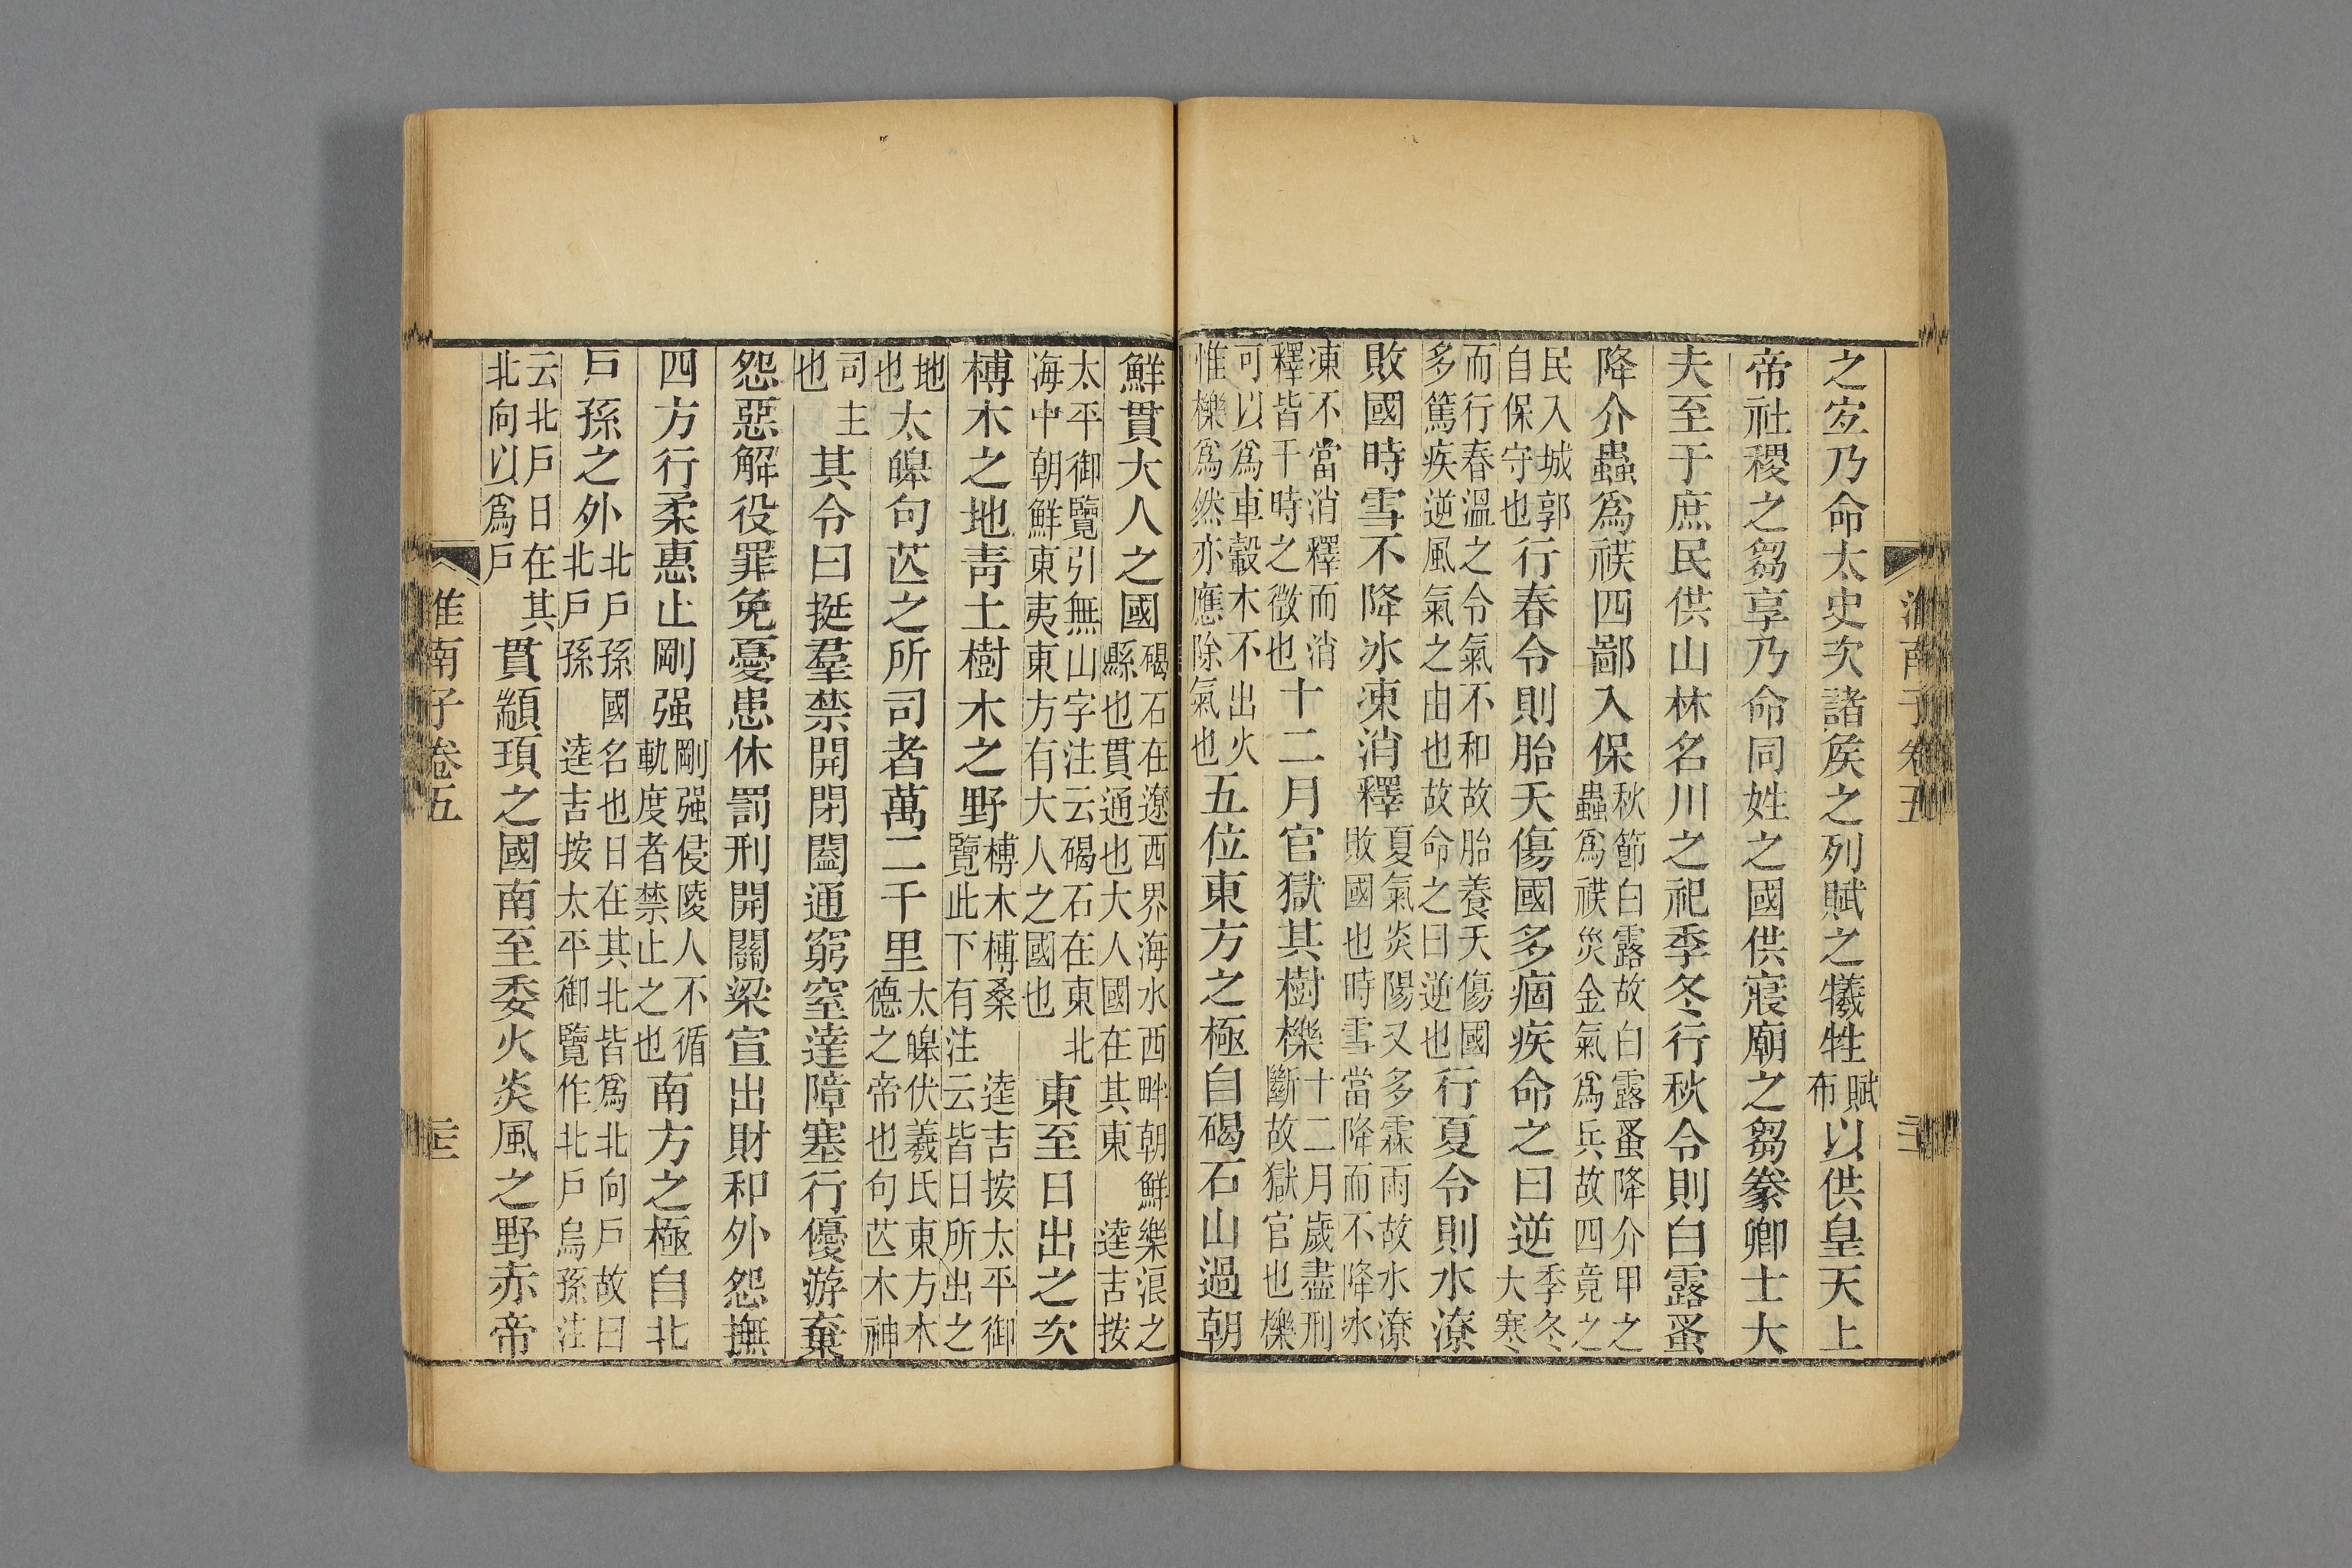 淮南子卷五
之宐乃命太史次諸侯之列賦之犧牲賦布以供皇天上
帝社稷之芻享乃命同姓之國供寢廟之芻豢卿士大
夫至于庶民供山林名川之祀季冬行秋令則白露蚤
降介蟲爲祆四鄙入保秋節白露故白露蚤降介甲之蟲爲祆災金氣爲兵故四竟之
民入城郭自保守也行春令則胎夭傷國多痼疾命之曰逆季冬大寒
而行春溫之令氣不和故胎養夭傷國多篤疾逆風氣之由也故命之曰逆也行夏令則水潦
敗國時雪不降冰凍消釋夏氣炎陽又多霖雨故水潦敗國也時雪當降而不降冰
凍不當消釋而消釋皆干時之徵也十二月官獄其樹櫟十二月歲盡刑斷故獄官也櫟
可以爲車轂木不出火惟櫟爲然亦應除氣也五位東方之極自碣石山過朝
鮮貫大人之國碣石在遼西界海水西畔朝鮮樂浪之縣也貫通也大人國在其東 逵吉按
太平御覽引無山字注云碣石在東北海中朝鮮東夷東方有大人之國也東至日出之次
榑木之地靑土樹木之野榑木榑桑 逵吉按太平御覽此下有注云皆日所出之
地也太皞句芒之所司者萬二千里太皞伏羲氏東方木德之帝也句芒木神
司主也其令曰挺羣禁開閉闔通窮窒達障塞行優游棄
怨惡解役罪免憂患休罰刑開關梁宣出財和外怨撫
四方行柔惠止剛强剛强侵陵人不循軌度者禁止之也南方之極自北
戶孫之外北戶孫國名也日在其北皆爲北向戶故曰北戶孫 逵吉按太平御覽作北戶烏孫注
云北戶日在其北向以爲戶貫顓頊之國南至委火炎風之野赤帝
淮南子卷五